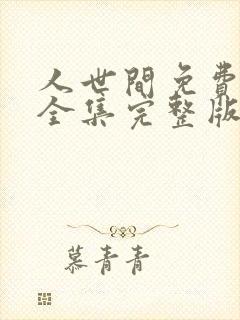 人世間免費
全集完整版
慕青青